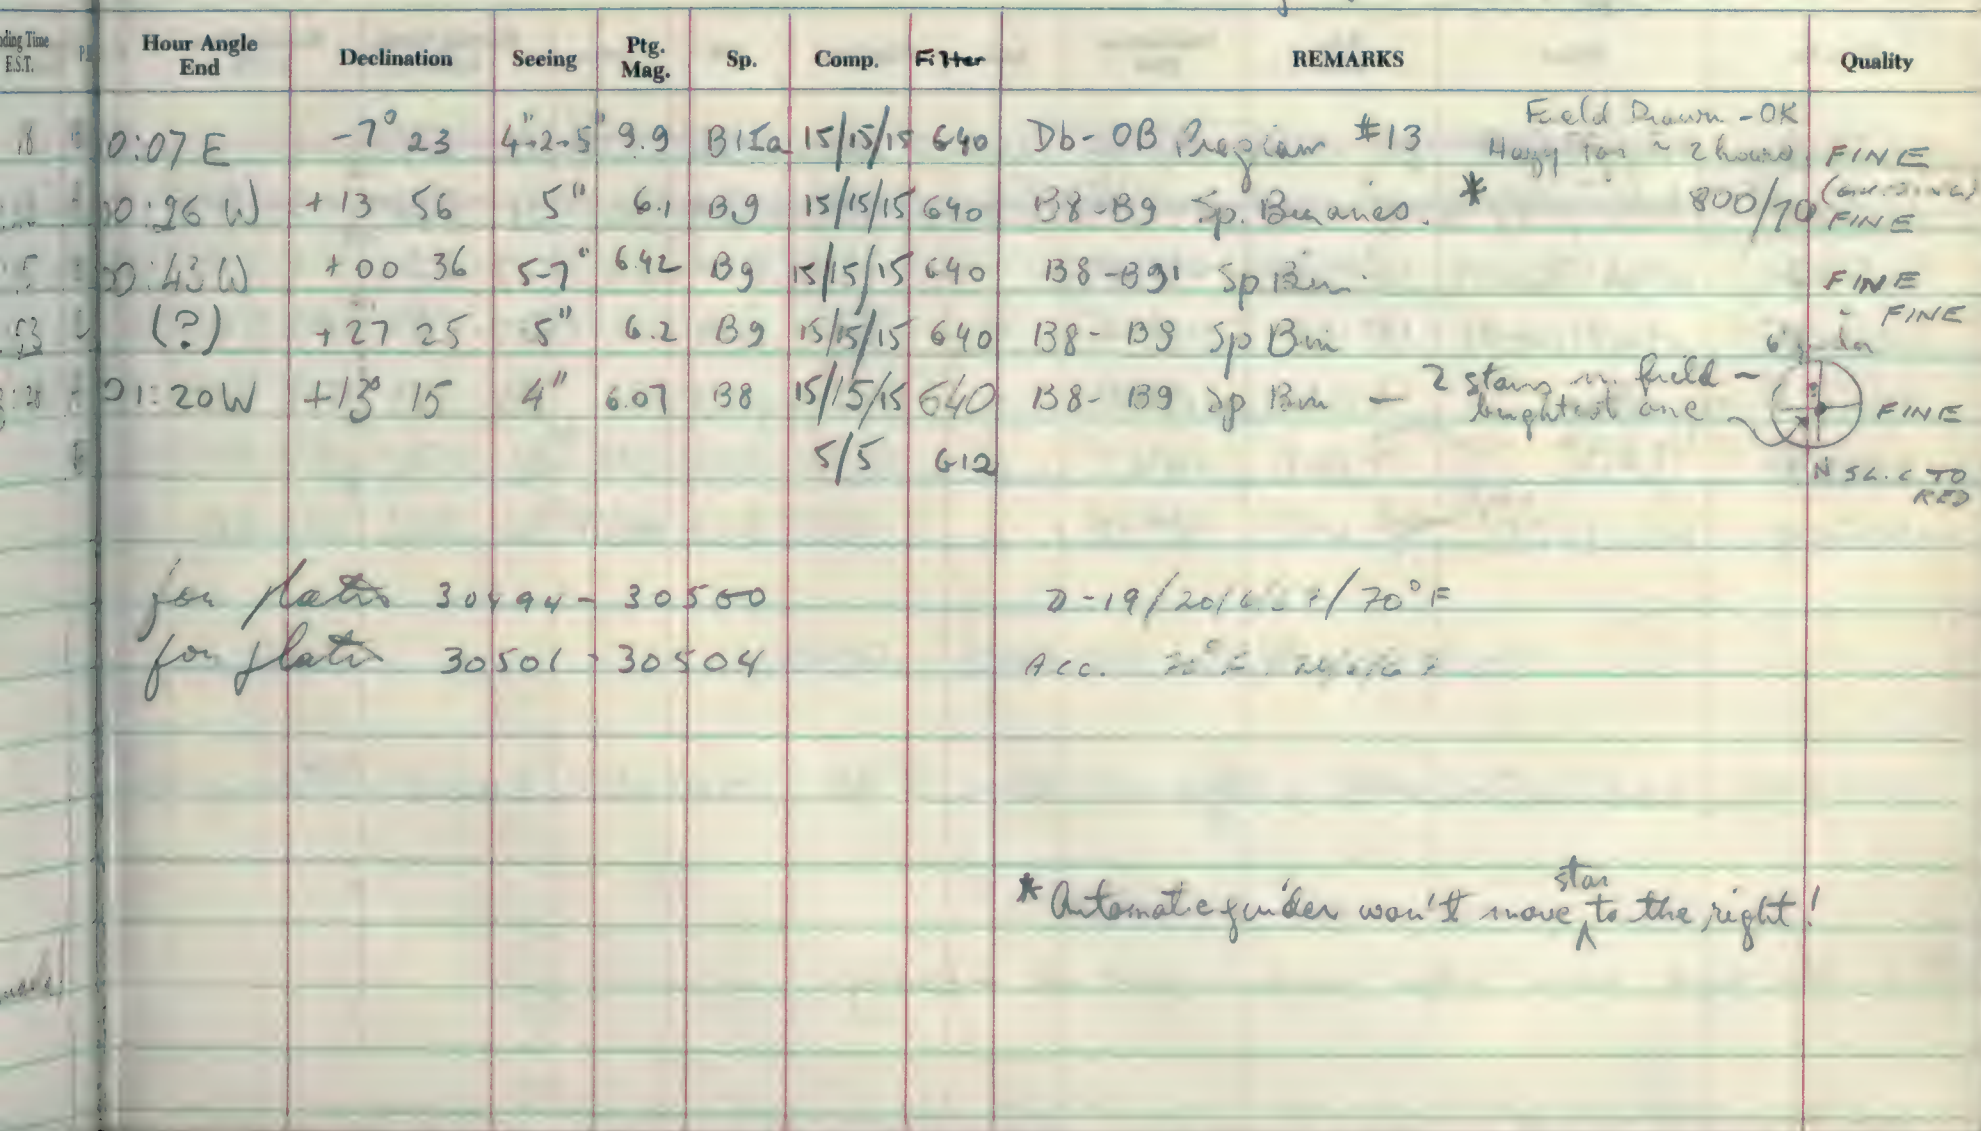 E.S.T. Hour Angle End Declination Seeing Ptg. Mag. Sp. Comp. Filter REMARKS Quality
Field Drawn - OK
0:07 E -7° 23 4"-2-5" 9.9 B1Ia 15/15/15 640 Db-OB Program #13 Hazy for ~ 2 hours FINE
00:26 W +13 56 5" 6.1 B9 15/15/15 640 B8-B9 Sp. Binaries. * 800/70 FINE
00:43 W +00 36 5-7" 6.42 B9 15/15/15 640 B8-B9 Sp Bin. FINE
(?) +27 25 5" 6.2 B9 15/15/15 640 B8-B9 Sp Bin FINE
01:20 W +13° 15 4" 6.07 B8 15/15/15 640 B8-B9 Sp Bin — 2 stars in field - brightest one FINE
5/5 612 N SL. TO RED
for plates 30494 - 30500 D-19/20/ /70°F
for plates 30501 - 30504 Acc.
* Automatic guider won't move star to the right!